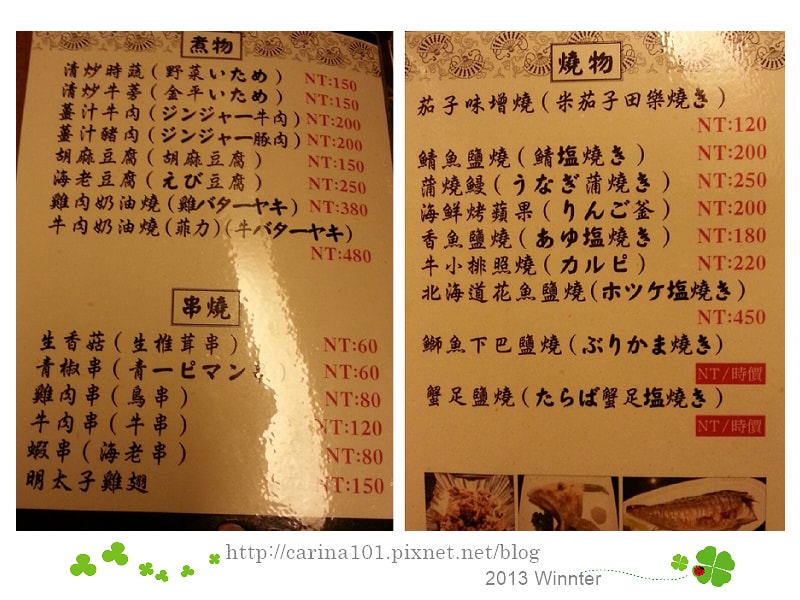 煮物
清炒時蔬(野菜いため) NT:150
清炒牛蒡(金平いため) NT:150
薑汁牛肉(ジンジャー牛肉) NT:200
薑汁豬肉(ジンジャー豚肉) NT:200
胡麻豆腐(胡麻豆腐) NT:150
海老豆腐(えび豆腐) NT:250
雞肉奶油燒(雞バターヤキ) NT:380
牛肉奶油燒(菲力)(牛バターヤキ)
NT:480
串燒
生香菇(生椎茸串) NT:60
青椒串(青一ピマン) NT:60
雞肉串(鳥串) NT:80
牛肉串(牛串) NT:120
蝦串(海老串) NT:80
明太子雞翅 NT:150
燒物
茄子味增燒(米茄子田樂燒き)
NT:120
鯖魚鹽燒(鯖塩燒き) NT:200
蒲燒鰻(うなぎ蒲燒き) NT:250
海鮮烤蘋果(りんご釜) NT:200
香魚鹽燒(あゆ塩燒き) NT:180
牛小排照燒(カルビ) NT:220
北海道花魚鹽燒(ホツケ塩燒き)
NT:450
鰤魚下巴鹽燒(ぶりかま燒き)
NT/時價
蟹足鹽燒(たらば蟹足塩燒き)
NT/時價
http://carina101.pixnet.net/blog
2013 Winnter